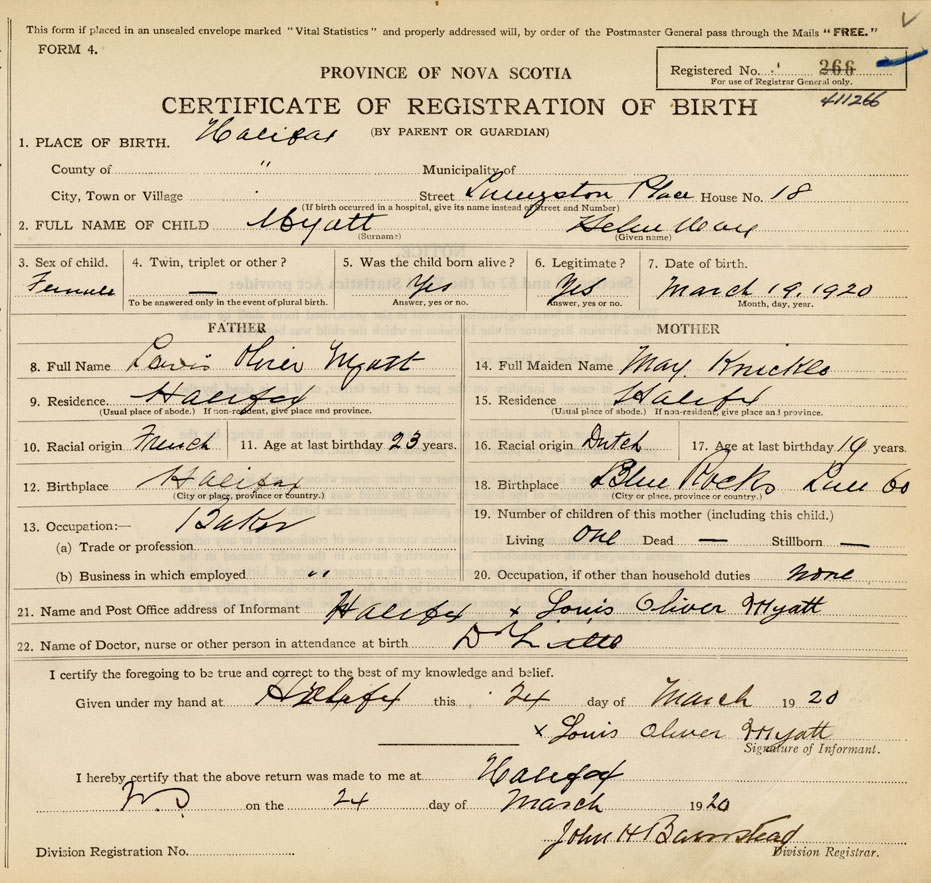 This form if placed in an unsealed envelope marked "Vital Statistics" and properly addressed will, by order of the Postmaster General pass through the Mails "FREE."
FORM 4.
PROVINCE OF NOVA SCOTIA
Registered No. 266
For use of Registrar General only.
411266
CERTIFICATE OF REGISTRATION OF BIRTH
(BY PARENT OR GUARDIAN)
1. PLACE OF BIRTH. Halifax
County of " Municipality of
City, Town or Village Street Livingston Place House No. 18
(If birth occurred in a hospital, give its name instead of Street and Number)
2. FULL NAME OF CHILD Myatt Helen
(Surname) (Given name)
3. Sex of child. 4. Twin, triplet or other? 5. Was the child born alive? 6. Legitimate? 7. Date of birth.
Female — Yes Yes March 19, 1920
To be answered only in the event of plural birth. Answer, yes or no. Answer, yes or no. Month, day, year.
FATHER MOTHER
8. Full Name Oliver Myatt 14. Full Maiden Name May Knickle
9. Residence Halifax 15. Residence Halifax
(Usual place of abode.) If non-resident, give place and province. (Usual place of abode.) If non-resident, give place and province.
10. Racial origin French 11. Age at last birthday 23 years. 16. Racial origin Dutch 17. Age at last birthday 19 years.
12. Birthplace Halifax 18. Birthplace Blue Rocks Lun Co
(City or place, province or country.) (City or place, province or country.)
13. Occupation:— Baker 19. Number of children of this mother (including this child.)
(a) Trade or profession Living One Dead — Stillborn —
(b) Business in which employed " 20. Occupation, if other than household duties none
21. Name and Post Office address of Informant Halifax x Louis Oliver Myatt
22. Name of Doctor, nurse or other person in attendance at birth Dr
I certify the foregoing to be true and correct to the best of my knowledge and belief.
Given under my hand at Halifax this 24 day of March 1920
x Louis Oliver Myatt
Signature of Informant.
I hereby certify that the above return was made to me at Halifax
on the 24 day of March 1920
John H Barnstead
Division Registration No. Division Registrar.